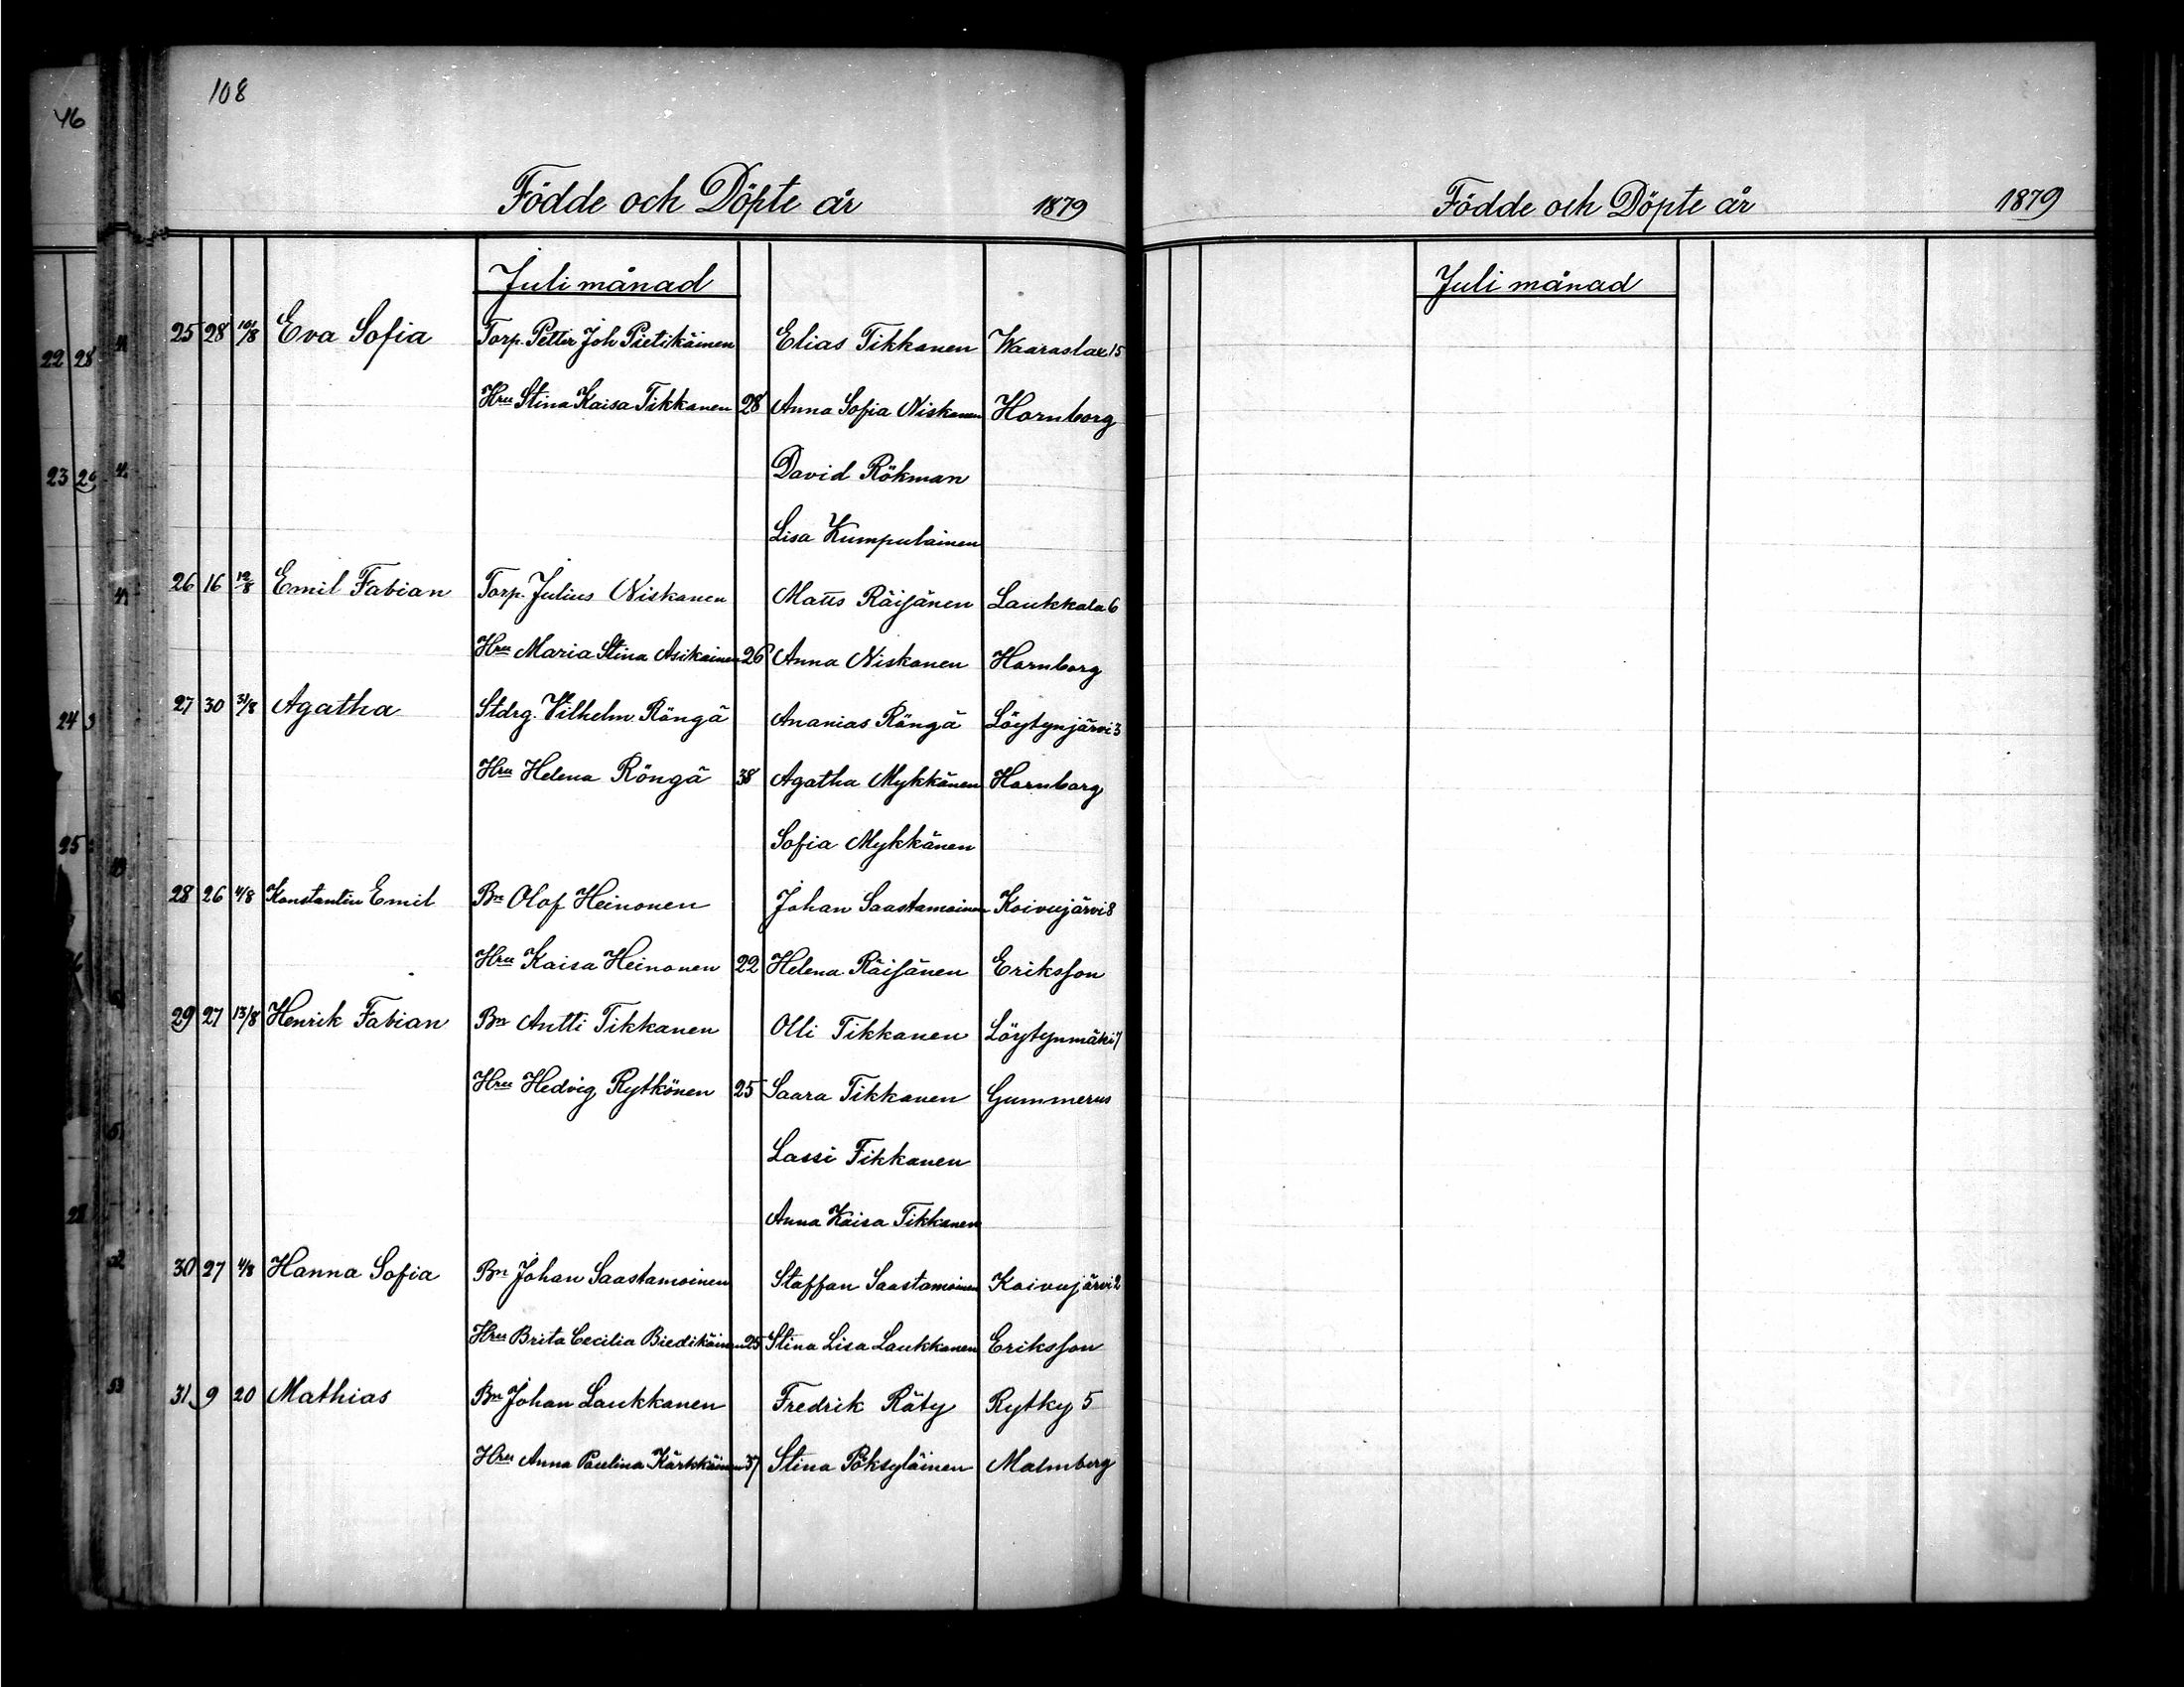 108
46
Födde och Döpte år 1879
Juli månad
25 28 10/8 Eva Sofia Torp. Petter Joh Pietikäinen Elias Tikkanen Waaraslax 15
Hru Stina Kaisa Tikkanen 28 Anna Sofia Niskanen Hornborg
David Rökman
Lisa Kumpulainen
26 16 12/8 Emil Fabian Torp. Julius Niskanen Matts Räisänen Laukkala 6
Hru Maria Stina Asikainen 26 Anna Niskanen Hornborg
27 30 31/8 Agatha Stdrg. Vilhelm Röngä Ananias Röngä Löytynjärvi 3
Hru Helena Röngä 38 Agatha Mykkänen Hornborg
Sofia Mykkänen
28 26 4/8 Konstantin Emil Bn Olof Heinonen Johan Saastamoinen Koivujärvi 8
Hru Kaisa Heinonen 22 Helena Räisänen Eriksson
29 27 13/8 Henrik Fabian Bn Antti Tikkanen Olli Tikkanen Löytynmäki 7
Hru Hedvig Rytkönen 25 Saara Tikkanen Gummerus
Lassi Tikkanen
Anna Kaisa Tikkanen
30 27 4/8 Hanna Sofia Bn Johan Saastamoinen Staffan Saastamoinen Koivujärvi 2
Hru Brita Cecilia Biedikäinen 25 Stina Lisa Laukkanen Eriksson
31 9 20 Mathias Bn Johan Laukkanen Fredrik Räty Rytky 5
Hru Anna Paulina Kärkkäinen 37 Stina Pöksyläinen Malmberg
Födde och Döpte år 1879
Juli månad
22 28
23
24
25